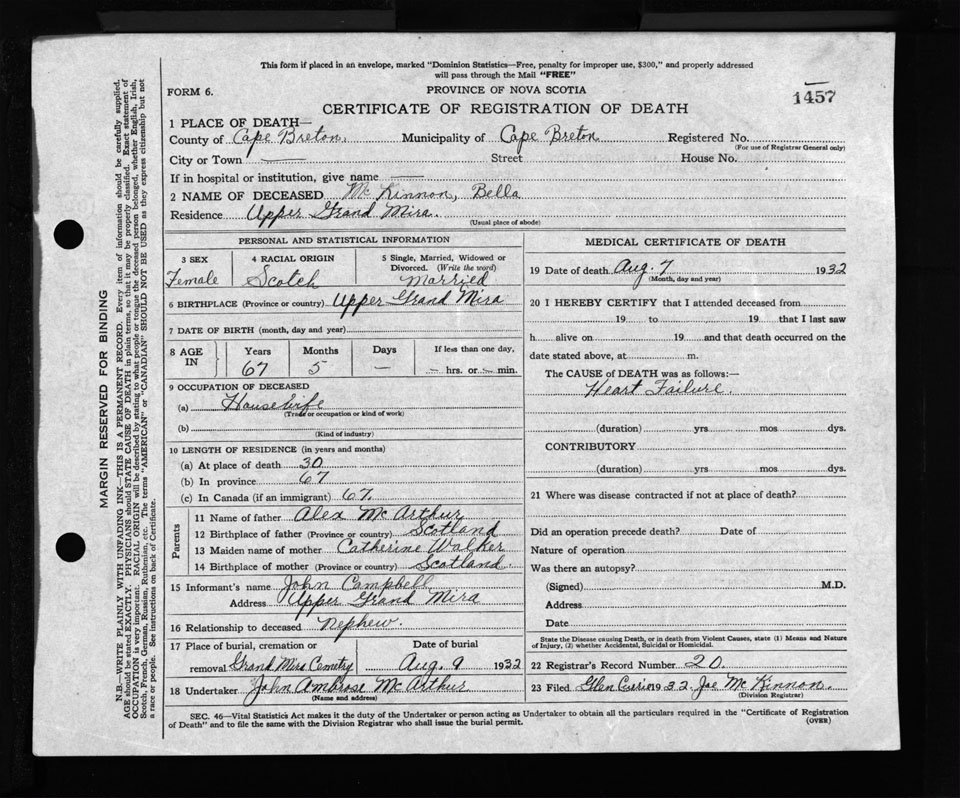 This form if placed in an envelope, marked "Dominion Statistics—Free, penalty for improper use, $300," and properly addressed
will pass through the Mail "FREE"
FORM 6.
PROVINCE OF NOVA SCOTIA
1457
CERTIFICATE OF REGISTRATION OF DEATH
1 PLACE OF DEATH—
County of Cape Breton. Municipality of Cape Breton Registered No.
(For use of Registrar General only)
City or Town — Street House No.
If in hospital or institution, give name —
2 NAME OF DECEASED Mc Kinnon, Bella
Residence Upper Grand Mira.
(Usual place of abode)
PERSONAL AND STATISTICAL INFORMATION
3 SEX 4 RACIAL ORIGIN 5 Single, Married, Widowed or
Divorced. (Write the word)
Female Scotch Married
6 BIRTHPLACE (Province or country) Upper Grand Mira
7 DATE OF BIRTH (month, day and year)
8 AGE IN Years Months Days If less than one day,
67 5 — — hrs. or — min.
9 OCCUPATION OF DECEASED
(a) Housewife
(Trade or occupation or kind of work)
(b)
(Kind of industry)
10 LENGTH OF RESIDENCE (in years and months)
(a) At place of death 30
(b) In province 67
(c) In Canada (if an immigrant) 67.
Parents
11 Name of father Alex Mc Arthur
12 Birthplace of father (Province or country) Scotland
13 Maiden name of mother Catherine Walker
14 Birthplace of mother (Province or country) Scotland.
15 Informant's name John Campbell
Address Upper Grand Mira
16 Relationship to deceased Nephew.
17 Place of burial, cremation or Date of burial
removal Grand Mira Cemetry Aug. 9 1932
18 Undertaker John Ambrose Mc Arthur
(Name and address)
MEDICAL CERTIFICATE OF DEATH
19 Date of death Aug. 7 1932
(Month, day and year)
20 I HEREBY CERTIFY that I attended deceased from
19 to 19 that I last saw
h alive on 19 and that death occurred on the
date stated above, at m.
The CAUSE of DEATH was as follows:—
Heart Failure.
(duration) yrs mos dys.
CONTRIBUTORY
(duration) yrs. mos dys.
21 Where was disease contracted if not at place of death?
Did an operation precede death? Date of
Nature of operation
Was there an autopsy?
(Signed) M.D.
Address
Date
State the Disease causing Death, or in death from Violent Causes, state (1) Means and Nature
of Injury, (2) whether Accidental, Suicidal or Homicidal.
22 Registrar's Record Number 20.
23 Filed 1932. Joe Mc Kinnon.
(Division Registrar)
SEC. 46—Vital Statistics Act makes it the duty of the Undertaker or person acting as Undertaker to obtain all the particulars required in the "Certificate of Registration
of Death" and to file the same with the Division Registrar who shall issue the burial permit.
(OVER)
MARGIN RESERVED FOR BINDING
N.B.—WRITE PLAINLY WITH UNFADING INK—THIS IS A PERMANENT RECORD. Every item of information should be carefully supplied.
AGE should be stated EXACTLY. PHYSICIANS should STATE CAUSE OF DEATH in plain terms, so that it may be properly classified. Exact statement of
OCCUPATION is very important. RACIAL ORIGIN will be described by stating to what people or tongue the deceased person belonged, whether English, Irish,
Scotch, French, German, Russian, Ruthenian, etc. The terms "AMERICAN" or "CANADIAN" SHOULD NOT BE USED as they express citizenship but not
a race or people. See instructions on back of Certificate.